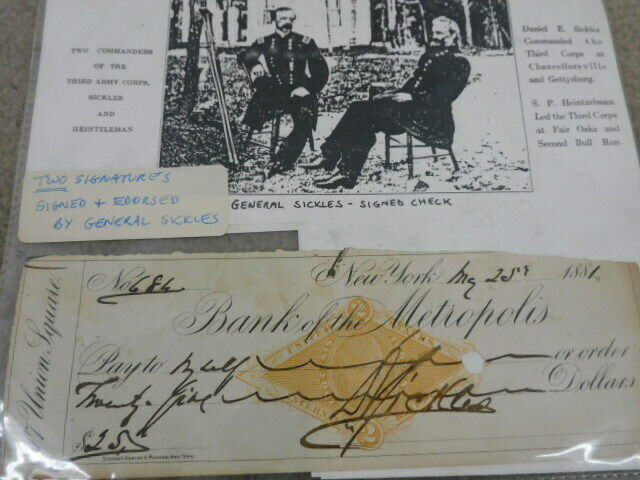 TWO COMMANDERS
OF THE
THIRD ARMY CORPS,
SICKLES
AND
HEINTZLEMAN
Daniel E. Sickles
Commanded the
Third Corps at
Chancellorsville
and Gettysburg.
S. P. Heintzelman
Led the Third Corps
at Fair Oaks and
Second Bull Run.
GENERAL SICKLES - SIGNED CHECK
TWO SIGNATURES
SIGNED + EDORSED
BY GENERAL SICKLES
No 686 New York May 25 1881.
Bank of the Metropolis
Pay to Myself or order
Twenty-five Dollars
D Sickles
$25
Union Square